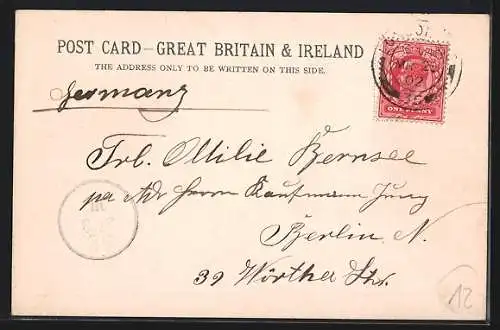 POST CARD—GREAT BRITAIN & IRELAND
THE ADDRESS ONLY TO BE WRITTEN ON THIS SIDE.
Germany
ONE PENNY
Frl. Ottilie Bernsee
per Adr Herrn Kaufmann Jung
Berlin N.
39 Wörther Str.
12